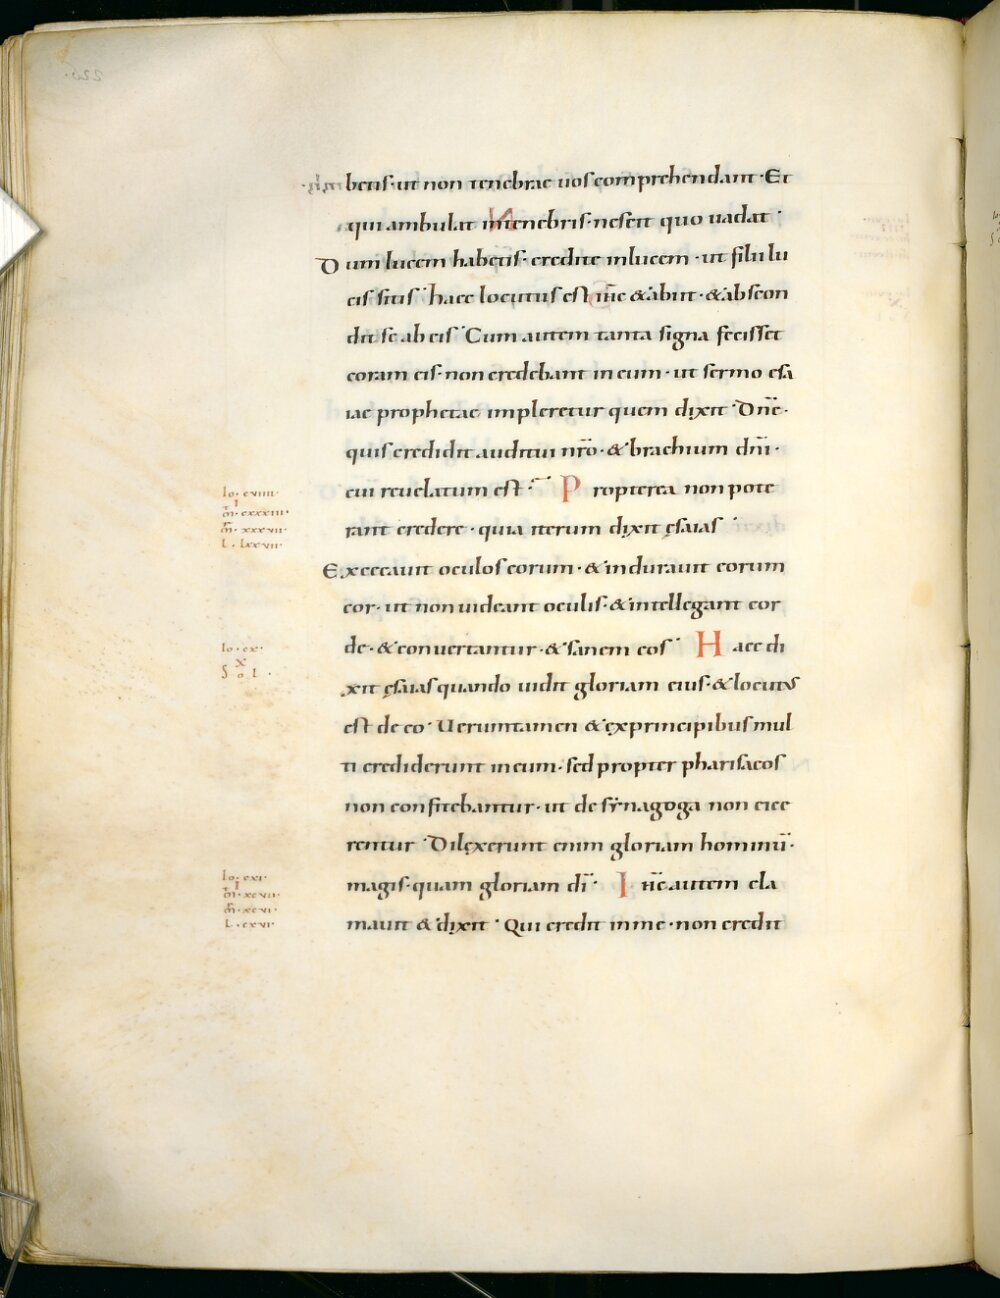 betis· ut non tenebrae uos comprehendant· Et
qui ambulat intenebris· nescit quo uadat·
Dum lucem habetis· credite inlucem· ut filii lu
cis sitis· haec locutus est iħc &abiit· &abscon
dit se ab eis· Cum autem tanta signa fecisset
coram eis· non credebant in eum· ut sermo esa
iae prophetae impleretur quem dixit· Dn̄e·
quis credidit auditui nr̄o· & brachium dn̄i·
cui reuelatum est· Propterea non pote
Io· cviiii·
rant credere· quia iterum dixit ęsaias·
m̄· cxxxiii·
m̄· xxxvii·
L· lxxvii·
Excecauit oculos eorum· & indurauit eorum
cor· ut non uideant oculis· & intellegant cor
de· & conuertantur· & sanem eos· Haec di
Io· cx·
x
S o L·
xit ęsaias quando uidit gloriam eius· & locutus
est de eo· Ueruntamen & exprincipibus mul
ti crediderunt in eum· sed propter pharisaeos
non confitebantur· ut de synagoga non eice
rentur· Dilexerunt enim gloriam hominū·
magis· quam gloriam dī· Iħc autem cla
Io· cxi·
m̄· xcvii·
m̄· xcvi·
L· cxvi·
mauit & dixit· Qui credit in me· non credit